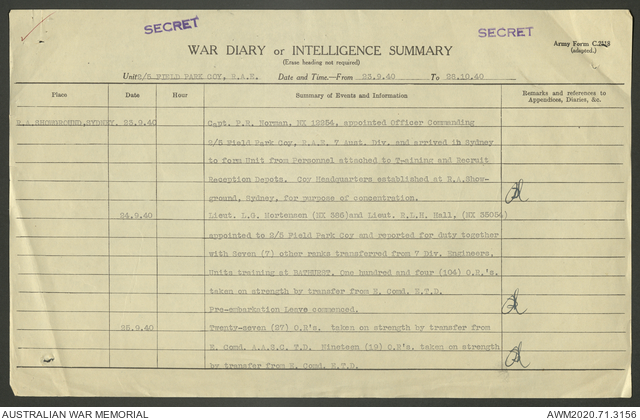 SECRET
SECRET
WAR DIARY or INTELLIGENCE SUMMARY
Army Form C.2118
(adapted.)
(Erase heading not required)
Unit 2/5 FIELD PARK COY, R.A.E. Date and Time—From 23.9.40 To 28.10.40
Place Date Hour Summary of Events and Information Remarks and references to
Appendices, Diaries, &c.
R.A. SHOWGROUND, SYDNEY. 23.9.40 Capt. P.R. Norman, NX 12254, appointed Officer Commanding
2/5 Field Park Coy, R.A.E. 7 Aust. Div. and arrived in Sydney
to form Unit from Personnel attached to Training and Recruit
Reception Depots. Coy Headquarters established at R.A.Show-
ground, Sydney, for purpose of concentration.
24.9.40 Lieut. L.G. Mortensen (NX 386) and Lieut. R.L.H. Hall, (NX 35054)
appointed to 2/5 Field Park Coy and reported for duty together
with Seven (7) other ranks transferred from 7 Div. Engineers.
Units training at BATHURST. One hundred and four (104) O.R.'s.
taken on strength by transfer from E. Comd. E.T.D.
Pre-embarkation Leave commenced.
25.9.40 Twenty-seven (27) O.R's. taken on strength by transfer from
E. Comd. A.A.S.C. T.D. Nineteen (19) O.R's. taken on strength
by transfer from E. Comd. E.T.D.
AUSTRALIAN WAR MEMORIAL AWM2020.71.3156